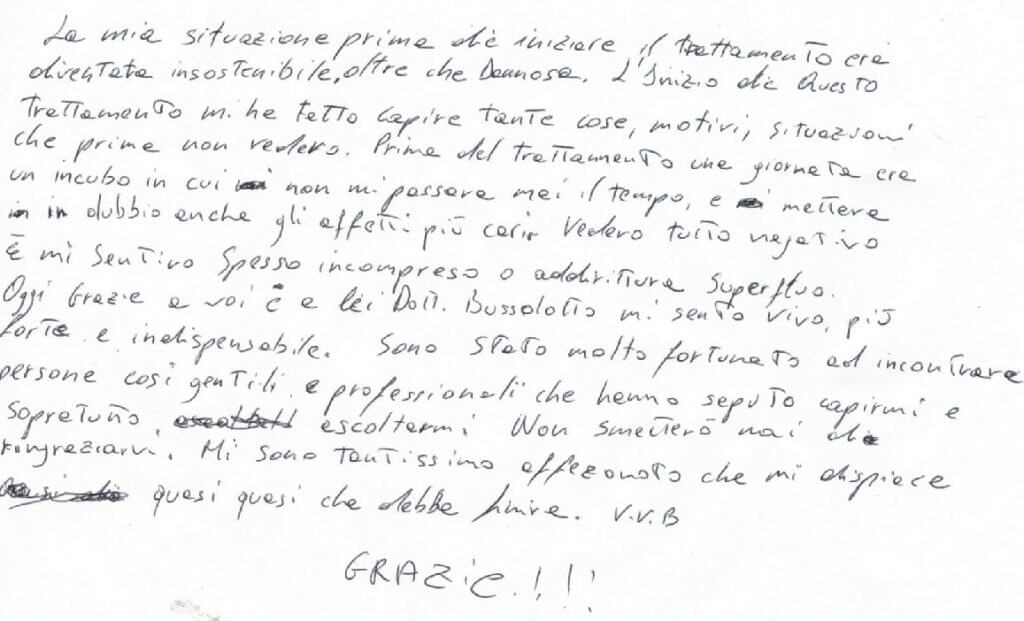 La mia situazione prima di iniziare il trattamento era
diventata insostenibile, oltre che Dannosa. L'Inizio di Questo
trattamento mi ha fatto capire tante cose, motivi, situazioni
che prima non vedevo. Prima del trattamento una giornata era
un incubo in cui non mi passava mai il tempo, e mettevo
in dubbio anche gli affetti più cari. Vedevo tutto negativo
E mi Sentivo Spesso incompreso o addirittura Superfluo.
Oggi Grazie a voi e a lei Dott. Bussolotto mi sento vivo, più
forte e indispensabile. Sono Stato molto fortunato ad incontrare
persone così gentili e professionali che hanno saputo capirmi e
Sopratutto, ascoltarmi Non Smetterò mai di
ringraziarvi. Mi sono tantissimo affezonato che mi dispiace
quasi quasi che debba finire. V.V.B
GRAZIE.!!!